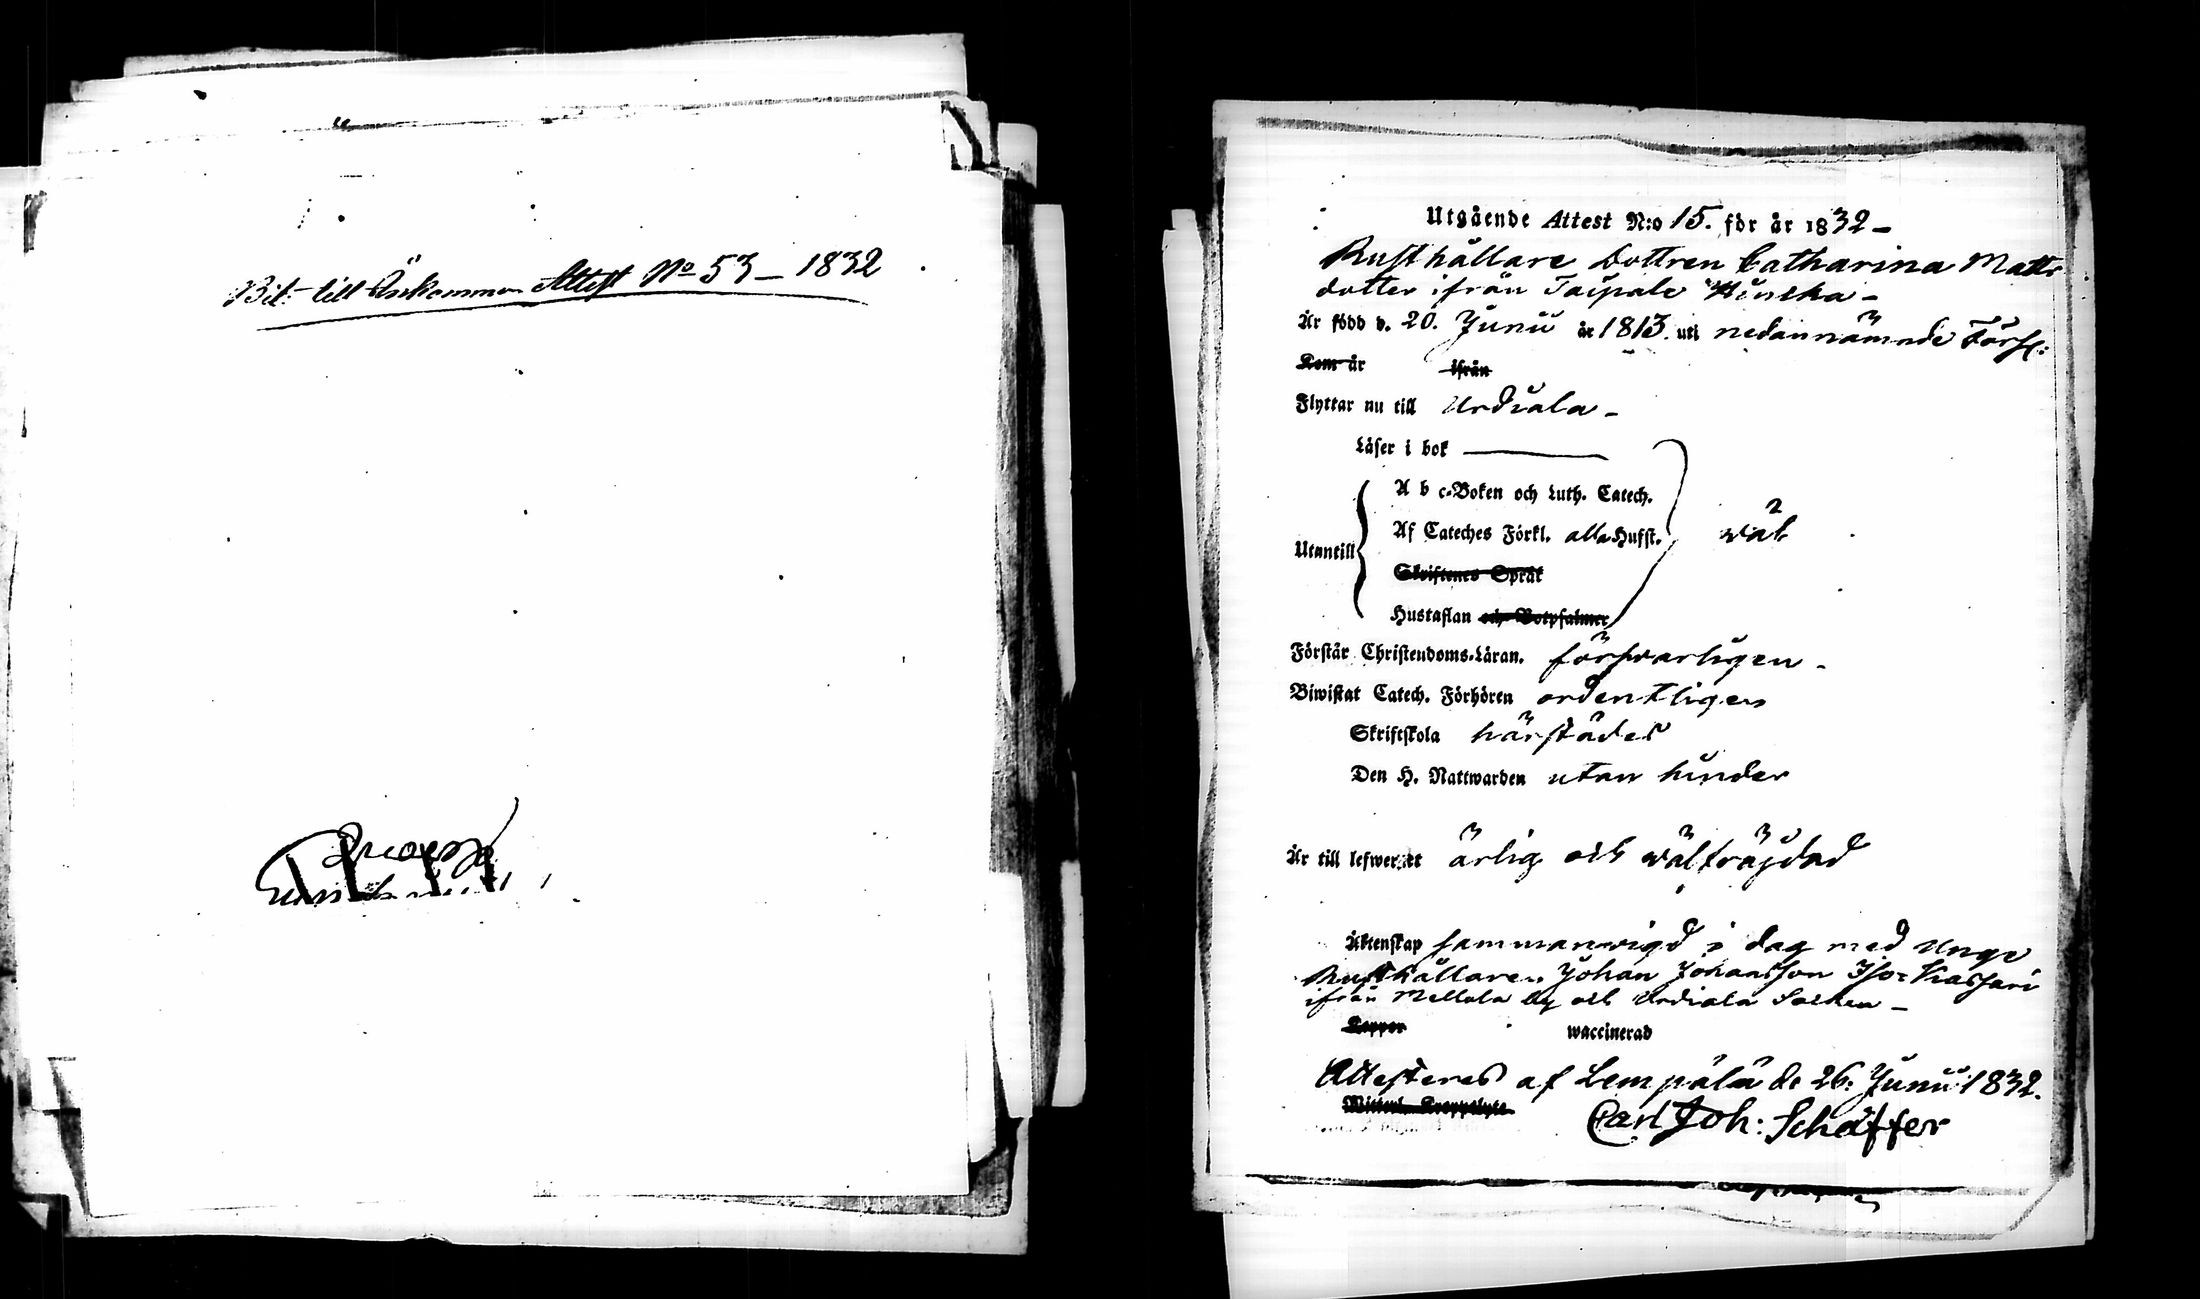 Bil: till Ankommen Attest No 53 – 1832
Utgående Attest N:o 15. för år 1832 –
Rusthållare Dottren Catharina Matts
dotter ifrån Taipale
Är född d. 20. Junii år 1813. uti nedannämnde Förs:
Kom år ifrån
Flyttar nu till Urdiala –
Läser i bok
A b c-Boken och Luth. Catech.
Af Cateches Förkl. alla Hufst. wäl
Utantill
Skriftenes Språk
Hustaflan och Botpsalmer
Förstår Christendoms-Läran. försvarligen –
Biwistat Catech. Förhören ordentligen
Skriftskola härstädes
Den H. Nattwarden utan hinder
Är till lefwernet ärlig och wälfräjdad
Äktenskap sammanwigd i dag med Unge
Rusthållaren Johan Johansson Iso-Kassari
ifrån Mellola by och Urdiala Socken –
Koppor waccinerad
Attesteres af Lempälä d. 26. Junii 1832.
Carl Joh: Schäffer